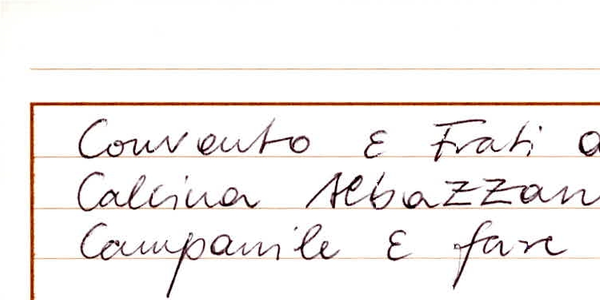 Convento E Frati a
Calcina Albazzan
Campanile E fare